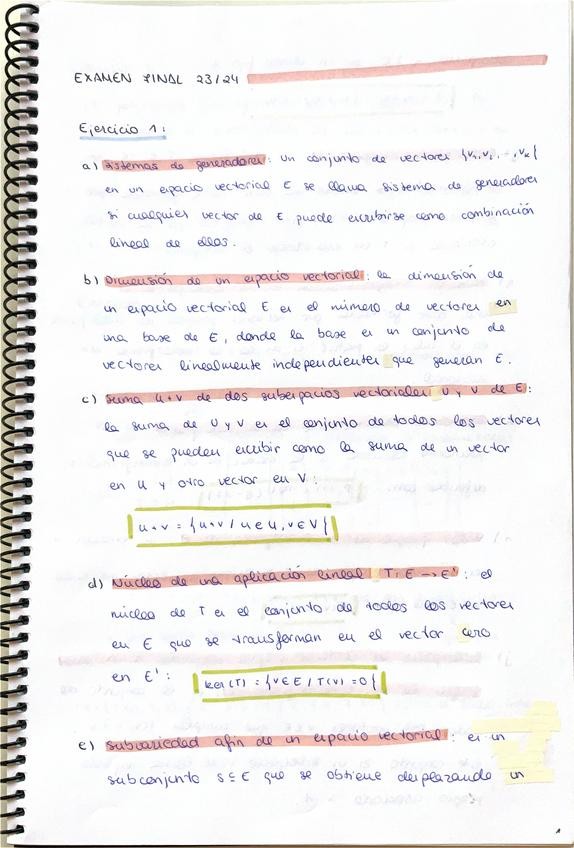 EXAMEN FINAL 23/24
Ejercicio 1:
a) Sistemas de generadores: un conjunto de vectores {v₁,v₂,...,vₖ}
en un espacio vectorial E se llama sistema de generadores
si cualquier vector de E puede escribirse como combinación
lineal de ellos.
b) Dimensión de un espacio vectorial: la dimensión de
un espacio vectorial E es el número de vectores en
una base de E, donde la base es un conjunto de
vectores linealmente independientes que generan E.
c) Suma U+V de dos subespacios vectoriales U y V de E:
la suma de U y V es el conjunto de todos los vectores
que se pueden escribir como la suma de un vector
en U y otro vector en V:
U+V = {u+v / u ∈ U, v ∈ V}
d) Núcleo de una aplicación lineal T: E → E': el
núcleo de T es el conjunto de todos los vectores
en E que se transforman en el vector cero
en E': ker(T) = {v ∈ E / T(v) = 0}
e) Subvariedad afín de un espacio vectorial: es un
subconjunto S ⊆ E que se obtiene desplazando un